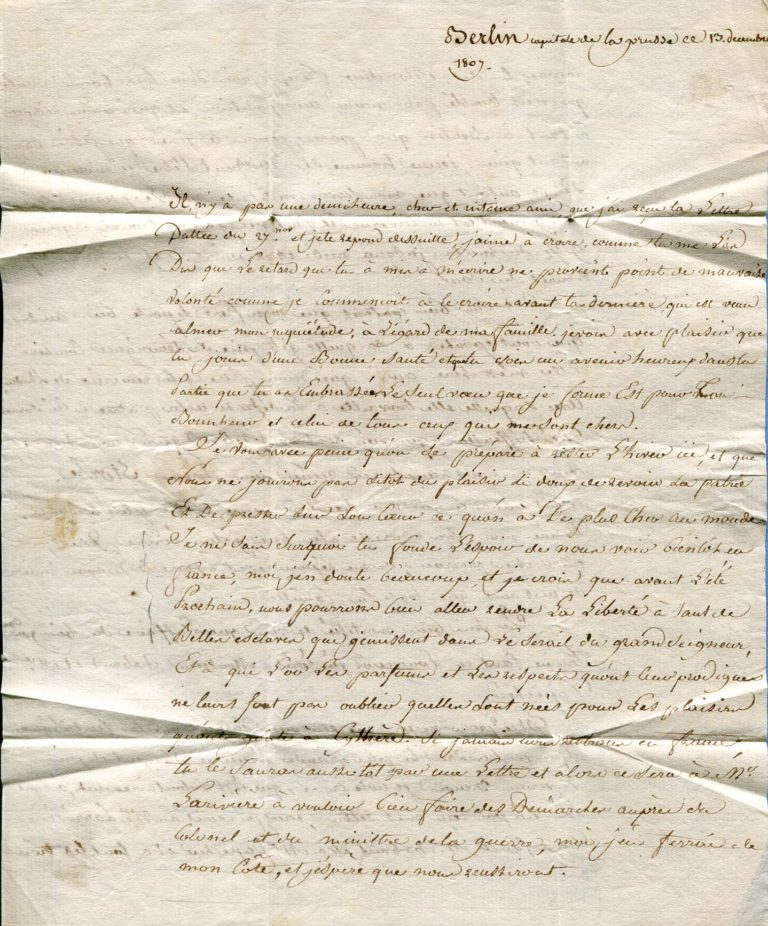 Berlin capitale de la prusse ce 13. decembre
1807.
Il n'y à pas une demiheure, cher et intime ami que j'ai reçu ta Lettre
Dattée du 27.nov et jete repond dessuitte, j'aime à croire, comme tu me Les
Dis que Le retard que tu à mis à m'écrire ne provient point de mauvaise
volonté comme je Commencoit à le croire avant ta derniere qui est venu
calmer mon inquiétude, à L'égard de ma famille. je vois avec plaisir que
tu jouis d'une Bonne Santé et que tu un avenir heureux dans la
Partie que tu as Embrassée, Le Seul vœu que je forme Est pour ton
Bonheur et celui de tous ceux qui me sont chers.
Je vois avec peine qu'on Se prépare à rester L'hiver ici, et que
Nous ne jouirons pas sitot du plaisir Si doux de revoir Sa patrie
Et De presser Sur Son Cœur ce qu'on à De plus Cher au monde
Je ne Sais Surquoi tu fonde L'espoir de nous voir bientot en
france, moi j'en doute béaucoup et je crois que avant L'été
Prochain, nous pourrons bien aller rendre La Liberté à tant de
Belles esclaves que gémissent dans Le Serail du grand Seigneur,
Et à que L'or Les parfums et Les respects qu'ont Leur prodiguent
ne leurs font pas oublier quelles Sont nées pour Les plaisirs
à Cythère. Si jamais nous en france
tu le Sauras aussitot par une Lettre et alors ce Sera à Mr.
Lariviere à vouloir bien faire des Démarches auprès du
Colonel et du ministre de la guerre, moi j'en ferrai de
mon Côté, et j'éspere que nous reussiront.